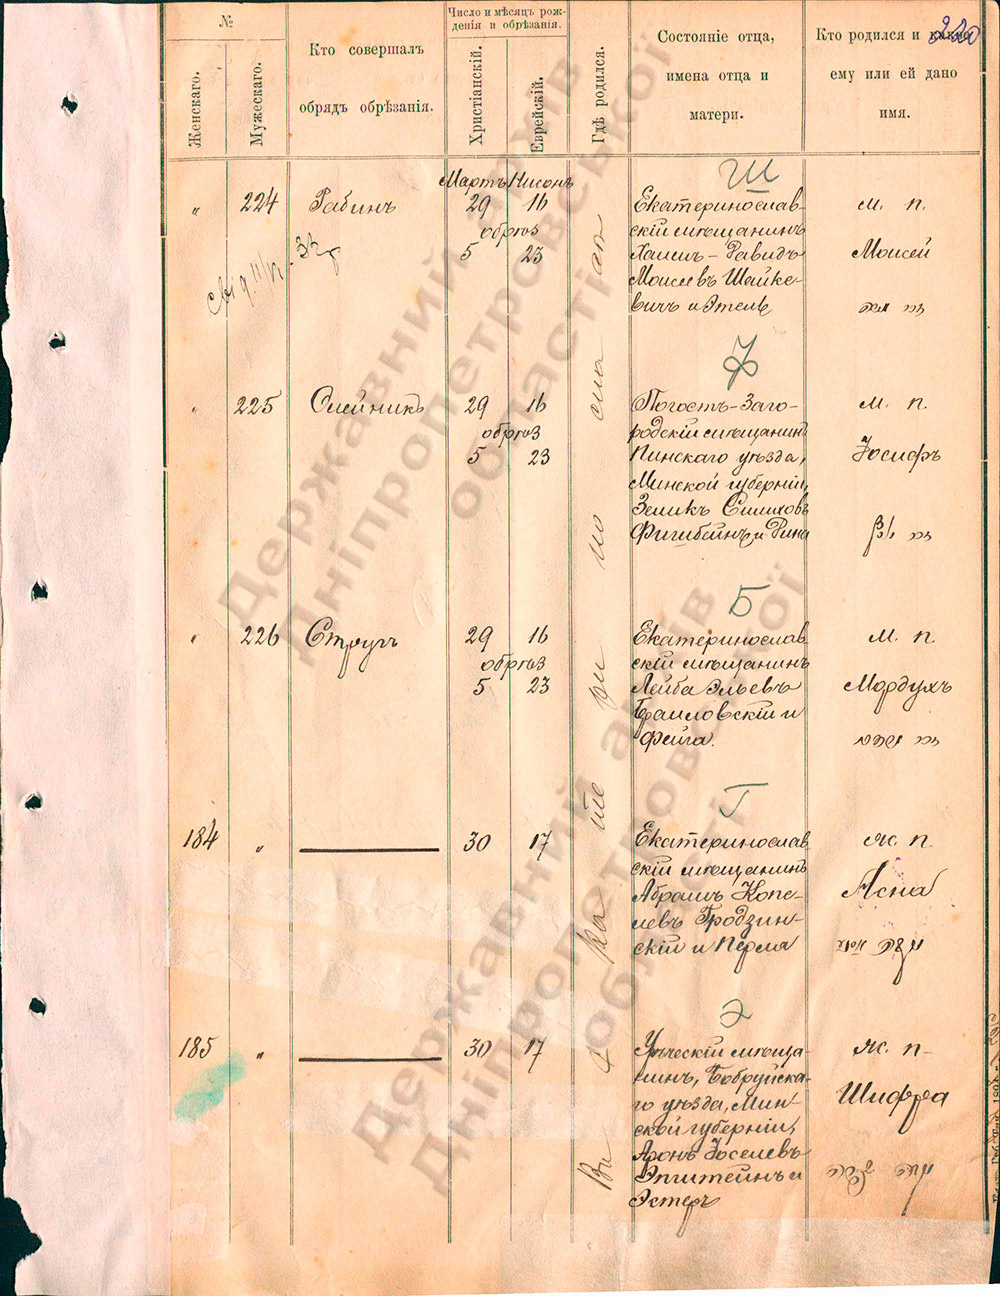 220
№
Женскаго.
Мужескаго.
Кто совершалъ
обрядъ обрѣзанія.
Число и мѣсяцъ рож-
денія и обрѣзанія.
Христіанскій.
Еврейскій.
Гдѣ родился.
Состояніе отца,
имена отца и
матери.
Кто родился и какое
ему или ей дано
имя.
Въ г. Екатеринославѣ
Ш
Мартъ Нисонъ
„ 224 Рабинъ 29 16
обрѣз
5 23
Екатеринослав-
скій мѣщанинъ
Хаимъ-Давидъ
Моисеевъ Шейке-
вичъ и Этель
м. п.
Моисей
Ф
„ 225 Олейникъ 29 16
обрѣз
5 23
Погостъ-Заго-
родскій мѣщанинъ
Пинскаго уѣзда,
Минской губерніи,
Зеликъ
и Рина
м. п.
Іосифъ
Б
„ 226 Стругъ 29 16
обрѣз
5 23
Екатеринослав
скій мѣщанинъ
Лейба Эльевъ
Браиловскій и
Фейга.
м. п.
Мордухъ
Г
184 „ 30 17
Екатеринослав
скій мѣщанинъ
Абрамъ Копе-
левъ Гродзин-
скій и Перла
ж. п.
Асна
Э
185 „ 30 17
мѣща-
нинъ, Бобруйска-
го уѣзда, Мин-
ской губерніи,
Аронъ Іоселевъ
Эпштейнъ и
Эстеръ
ж. п.
Шифра
Державний архів
Дніпропетровської
області
Державний архів
Дніпропетровської
області